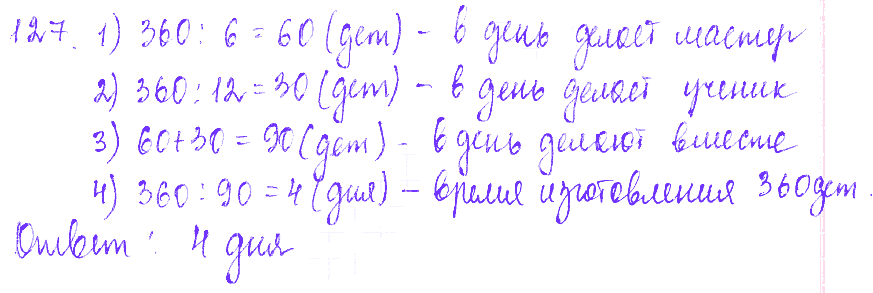 127. 1) 360 : 6 = 60 (дет) - в день делает мастер
2) 360 : 12 = 30 (дет) - в день делает ученик
3) 60+30 = 90 (дет) - в день делают вместе
4) 360 : 90 = 4 (дня) - время изготовления 360 дет.
Ответ : 4 дня